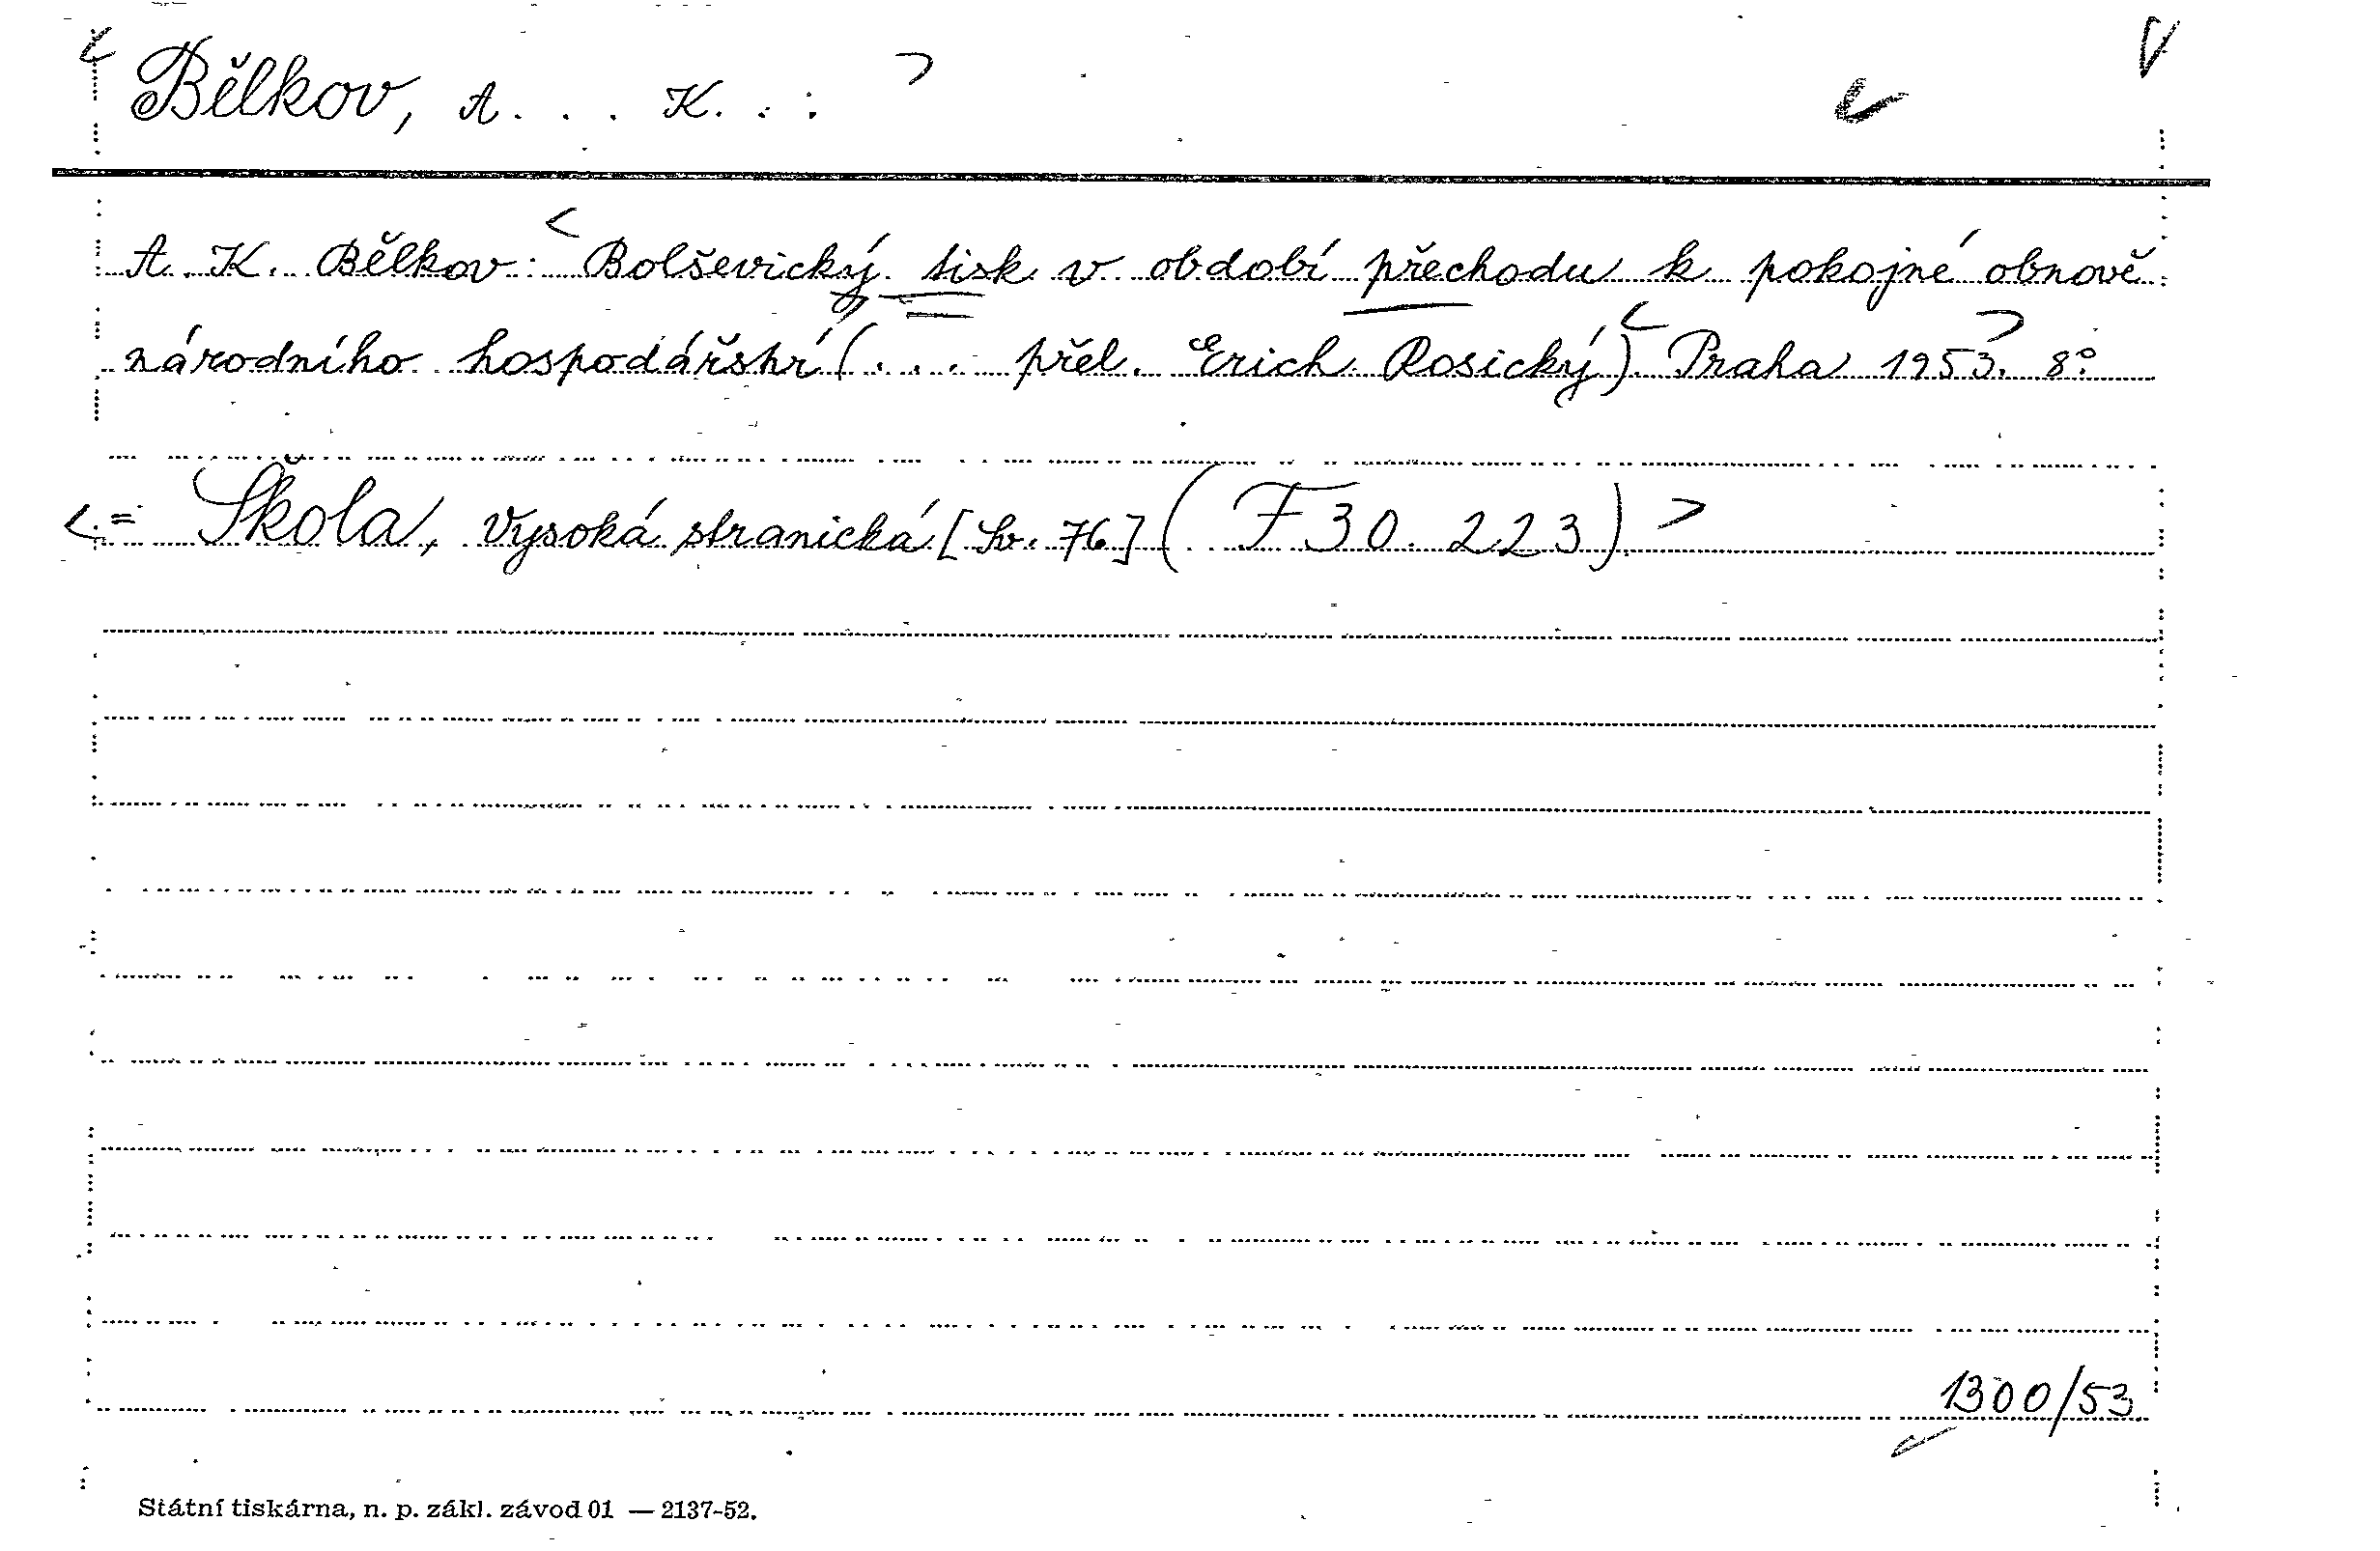 Bělkov, A . . . K. . .
A. K. Bělkov: Bolševický tisk v období přechodu k pokojné obnově
národního hospodářství (. . . přel. Erich Rosický) Praha 1953. 8°
= Škola, vysoká stranická [Sv. 76] (F 30.223)
1300/53
Státní tiskárna, n. p. zákl. závod 01 — 2137-52.